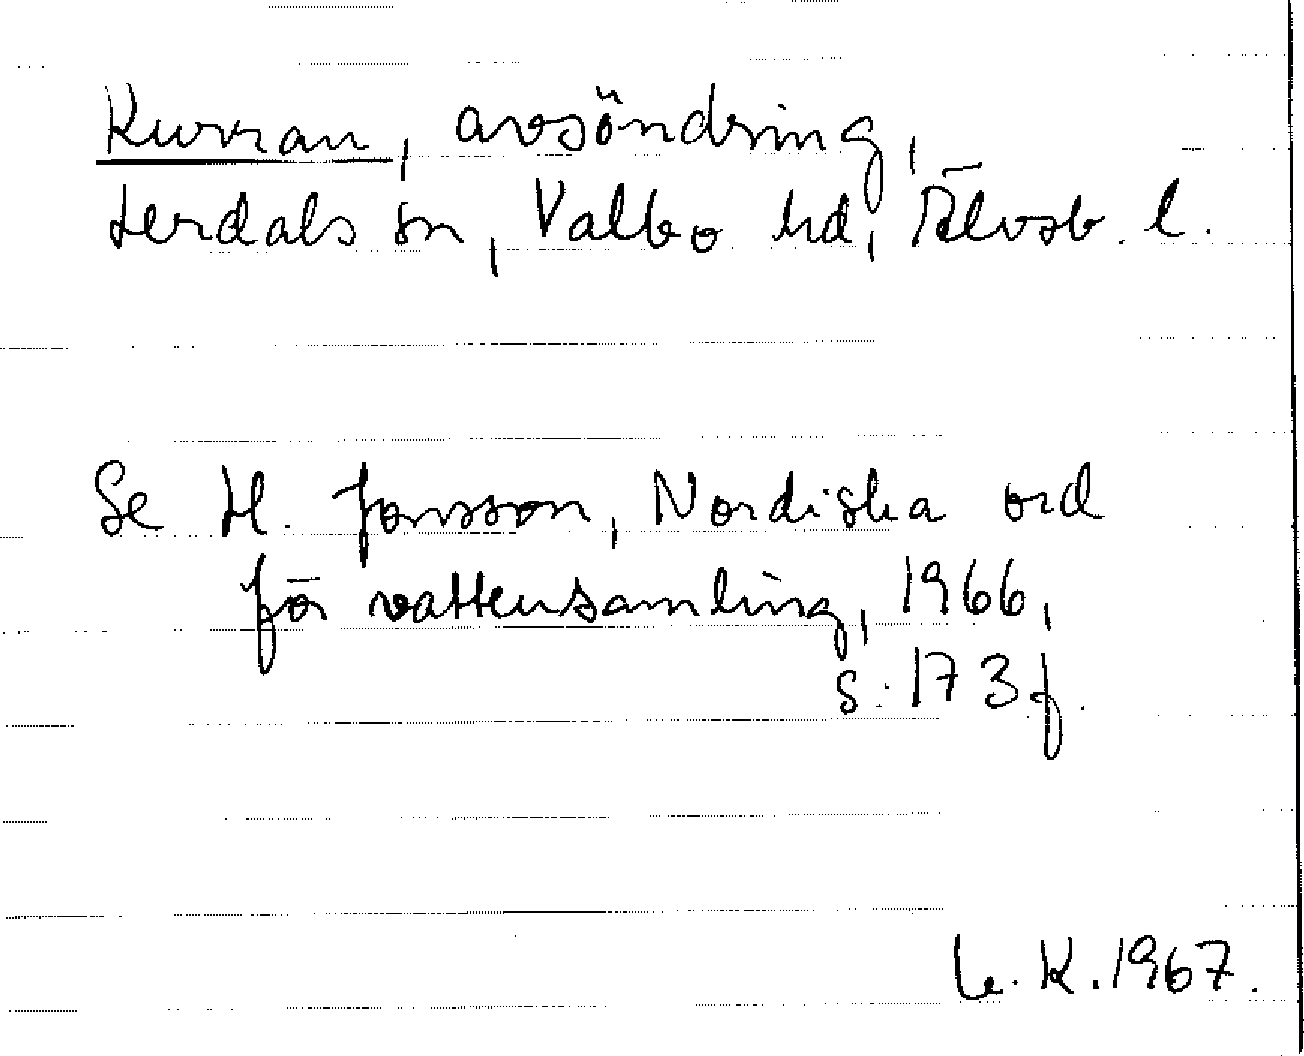 Kurran, avsöndring,
Lerdals sn, Valbo hd, Älvsb. l.
Se H. Jonsson, Nordiska ord
för vattensamling, 1966,
s. 173 f.
K. 1967.